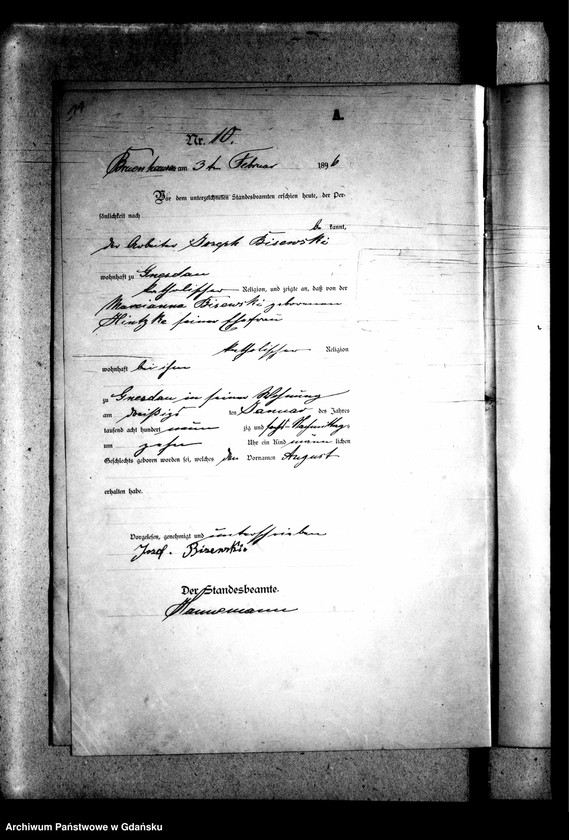 A.
Nr. 10.
am 3 ten Februar 1896
Vor dem unterzeichneten Standesbeamten erschien heute, der Per-
sönlichkeit nach
be kannt,
der Arbeiter Joseph Bisewski
wohnhaft zu Gnesdau
katholischer Religion, und zeigte an, daß von der
Marianna Bisewski geborenen
Hintzke seiner Ehefrau
katholischer Religion
wohnhaft bei ihm
zu Gnesdau in seiner Wohnung
am dreißigs ten Januar des Jahres
tausend acht hundert neun zig und sechs Nachmittags
um zehn Uhr ein Kind männ lichen
Geschlechts geboren worden sei, welches den Vornamen August
erhalten habe.
Vorgelesen, genehmigt und unterschrieben
Josef. Bizewski
Der Standesbeamte.
Hannemann
Archiwum Państwowe w Gdańsku